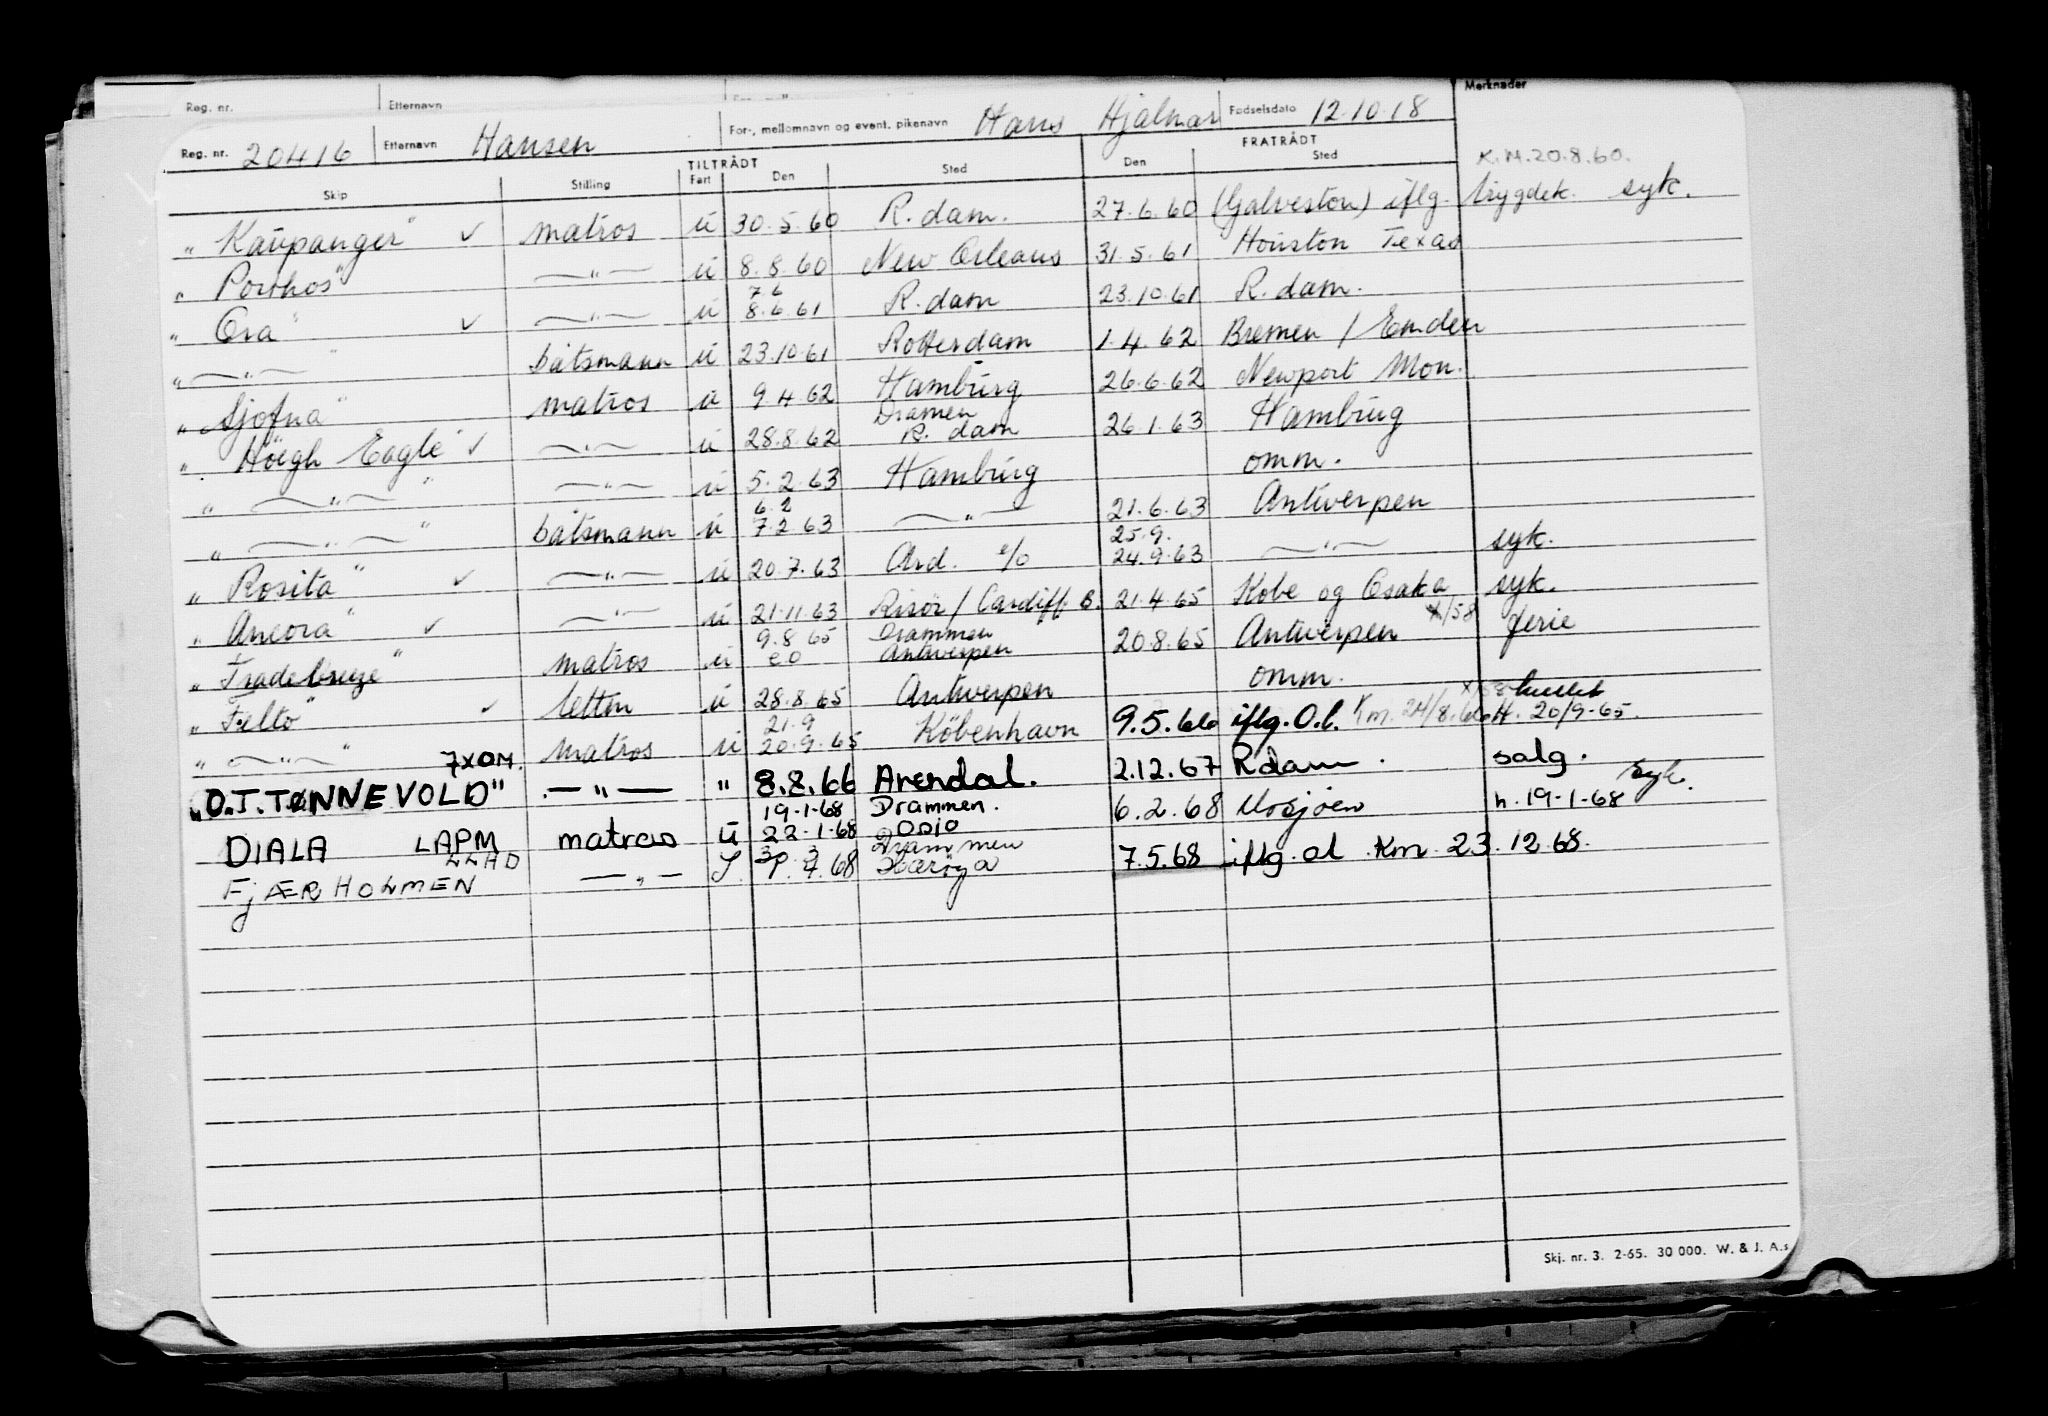 Reg. nr. Etternavn Merknader
Reg. nr. 20416 Etternavn Hansen For-, mellomnavn og event. pikenavn Hans Hjalmar Fødselsdato 12.10.18
TILTRÅDT FRATRÅDT K.M.20.8.60.
Skip Stilling Fart Den Sted Den Sted
"Kaupanger" ✓ matros u 30.5.60 R.dam. 27.6.60 (Galveston) iflg. trygdek. syk.
"Porthos" —"— u 8.8.60 New Orleans 31.5.61 Houston Texas
7.6
"Ora" ✓ —"— u 8.6.61 R.dam 23.10.61 R.dam.
"—"—" båtsmann u 23.10.61 Rotterdam 1.4.62 Bremen / Emden
"Sjofna" matros u 9.4.62 Hamburg 26.6.62 Newport Mon.
Dramen
"Höegh Eagle" ✓ —"— u 28.8.62 R.dam 26.1.63 Hamburg
"—"—" —"— u 5.2.63 Hamburg omm.
6.2
"—"—" båtsmann u 7.2.63 —"— 21.6.63 Antwerpen
25.9.
"Rosita" ✓ —"— u 20.7.63 Ard. e/o 24.9.63 —"— syk.
"Ancora" ✓ —"— u 21.11.63 Risör / Cardiff B. 21.4.65 Kobe og Osaka syk.
9.8.65 Drammen x/58
"Tradebreeze" matros u eo Antwerpen 20.8.65 Antwerpen ferie
"Telto" ✓ lettm u 28.8.65 Antwerpen omm.
21.9
"—"—" matros u 20.9.65 København 9.5.66 iflg. O.l. Km. 24/8.66 H. 20/9-65.
7XOM.
"O.J. TØNNEVOLD" —"— " 8.8.66 Arendal. 2.12.67 Rdam. salg.
19-1-68 Drammen. syk.
DIALA LAPM matros u 22-1-68 Oslo 6.2.68 Mosjøen h. 19-1-68
LLAD 3 Drammen
FjÆRHOLMEN —"— S. 4.68 7.5.68 iflg. ol Km 23.12.68.
Skj. nr. 3. 2-65. 30 000. W. & J. A.s